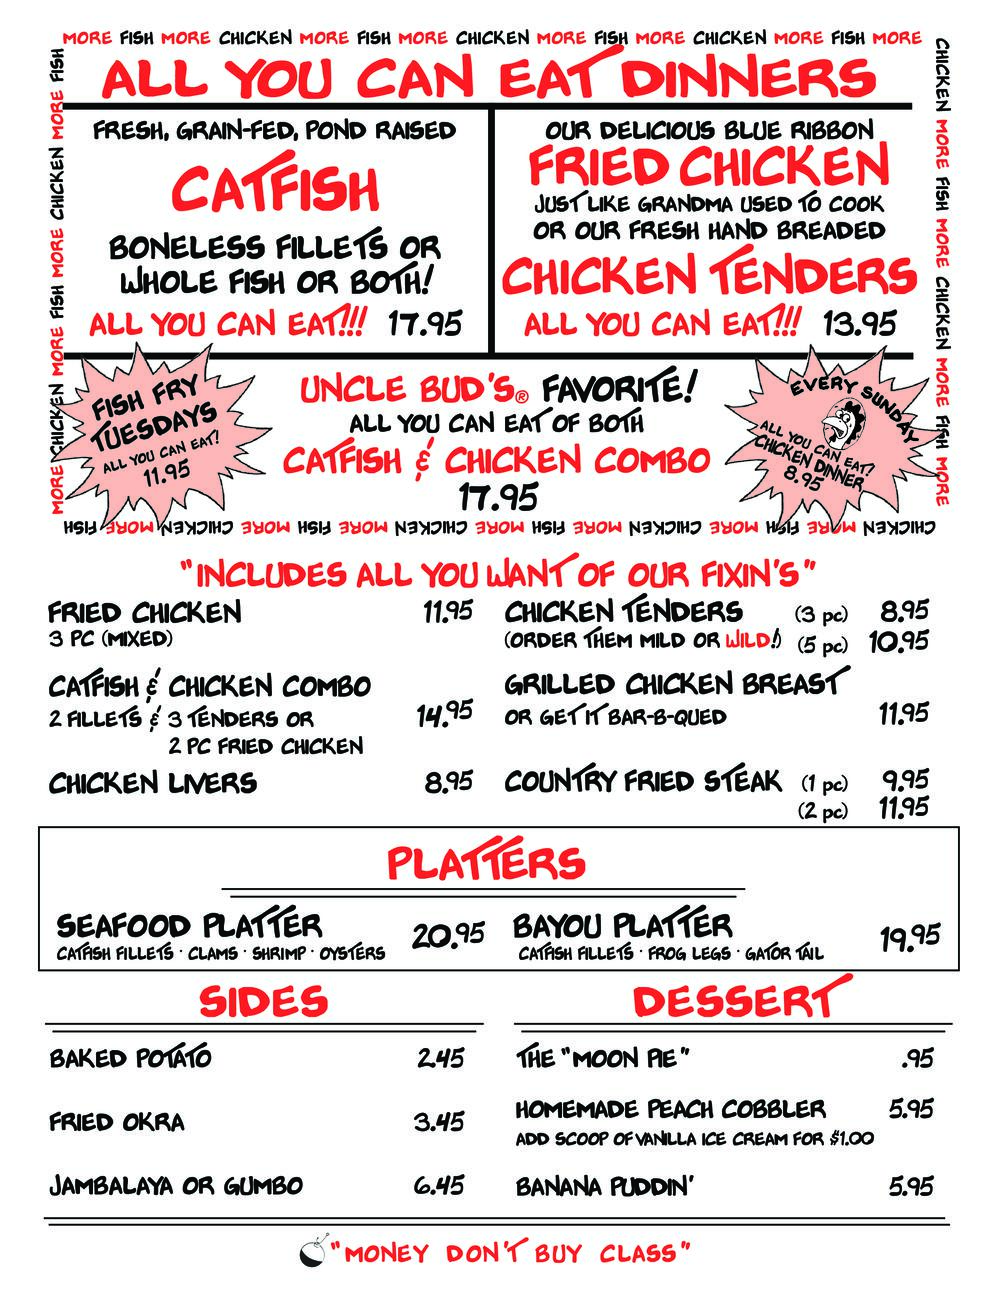 MORE FISH MORE CHICKEN MORE FISH MORE CHICKEN MORE FISH MORE CHICKEN MORE FISH MORE
CHICKEN MORE FISH MORE CHICKEN MORE FISH MORE
MORE CHICKEN MORE FISH MORE CHICKEN MORE FISH
ALL YOU CAN EAT DINNERS
FRESH, GRAIN-FED, POND RAISED
CATFISH
BONELESS FILLETS OR
WHOLE FISH OR BOTH!
ALL YOU CAN EAT!!! 17.95
OUR DELICIOUS BLUE RIBBON
FRIED CHICKEN
JUST LIKE GRANDMA USED TO COOK
OR OUR FRESH HAND BREADED
CHICKEN TENDERS
ALL YOU CAN EAT!!! 13.95
FISH FRY
TUESDAYS
ALL YOU CAN EAT!
11.95
UNCLE BUD'S® FAVORITE!
ALL YOU CAN EAT OF BOTH
CATFISH & CHICKEN COMBO
17.95
EVERY SUNDAY
ALL YOU CAN EAT!
CHICKEN DINNER
8.95
CHICKEN MORE FISH MORE CHICKEN MORE FISH MORE CHICKEN MORE FISH MORE CHICKEN MORE FISH
"INCLUDES ALL YOU WANT OF OUR FIXIN'S"
FRIED CHICKEN 11.95
3 PC (MIXED)
CATFISH & CHICKEN COMBO
2 FILLETS & 3 TENDERS OR 14.95
2 PC FRIED CHICKEN
CHICKEN LIVERS 8.95
CHICKEN TENDERS (3 pc) 8.95
(ORDER THEM MILD OR WILD!) (5 pc) 10.95
GRILLED CHICKEN BREAST
OR GET IT BAR-B-QUED 11.95
COUNTRY FRIED STEAK (1 pc) 9.95
(2 pc) 11.95
PLATTERS
SEAFOOD PLATTER 20.95
CATFISH FILLETS · CLAMS · SHRIMP · OYSTERS
BAYOU PLATTER 19.95
CATFISH FILLETS · FROG LEGS · GATOR TAIL
SIDES
BAKED POTATO 2.45
FRIED OKRA 3.45
JAMBALAYA OR GUMBO 6.45
DESSERT
THE "MOON PIE" .95
HOMEMADE PEACH COBBLER 5.95
ADD SCOOP OF VANILLA ICE CREAM FOR $1.00
BANANA PUDDIN' 5.95
"MONEY DON'T BUY CLASS"